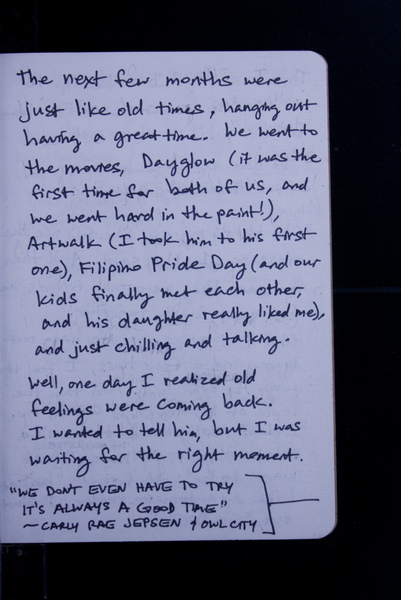 The next few months were
just like old times, hanging out
having a great time. We went to
the movies, Dayglow (it was the
first time for both of us, and
we went hard in the paint!),
Artwalk (I took him to his first
one), Filipino Pride Day (and our
kids finally met each other,
and his daughter really liked me),
and just chilling and talking.
Well, one day I realized old
feelings were coming back.
I wanted to tell him, but I was
waiting for the right moment.
"WE DON'T EVEN HAVE TO TRY
IT'S ALWAYS A GOOD TIME"
~ CARLY RAE JEPSEN & OWL CITY